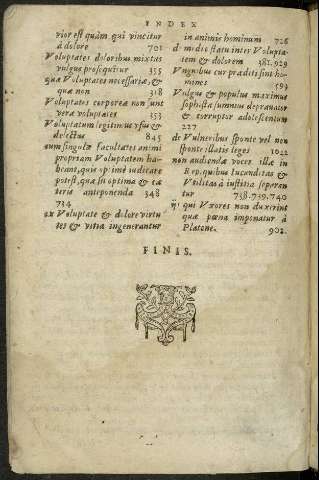 INDEX
vior est quàm qui vincitur
à dolore 701
Voluptates doloribus mixtas
vulgus prosequitur 355
quæ Voluptates necessariæ, &
quæ non 318
Voluptates corporeæ non sunt
veræ voluptates 353
Voluptatum legitimus vsus &
delectus 845
cum singulæ facultates animi
propriam Voluptatem ha-
beant, quis optimè iudicare
potest, quæ sit optima & cæ
teris anteponenda 348
734
ex Voluptate & dolore virtu
tes & vitia ingenerantur
in animis hominum 726
de medio statu inter Volupta-
tem & dolorem 381.929
Vnguibus cur præditi sint ho-
mines 593
Vulgus & populus maximus
sophista summus deprauator
& corruptor adolescentum
227
de Vulneribus sponte vel non
sponte illatis leges 1022
non audiendæ voces illæ in
Rep. quibus Iucunditas &
Vtilitas à iustitia seperan
tur 738.739.740
ijs qui Vxores non duxerint
quæ pœna imponatur à
Platone. 902.
FINIS.